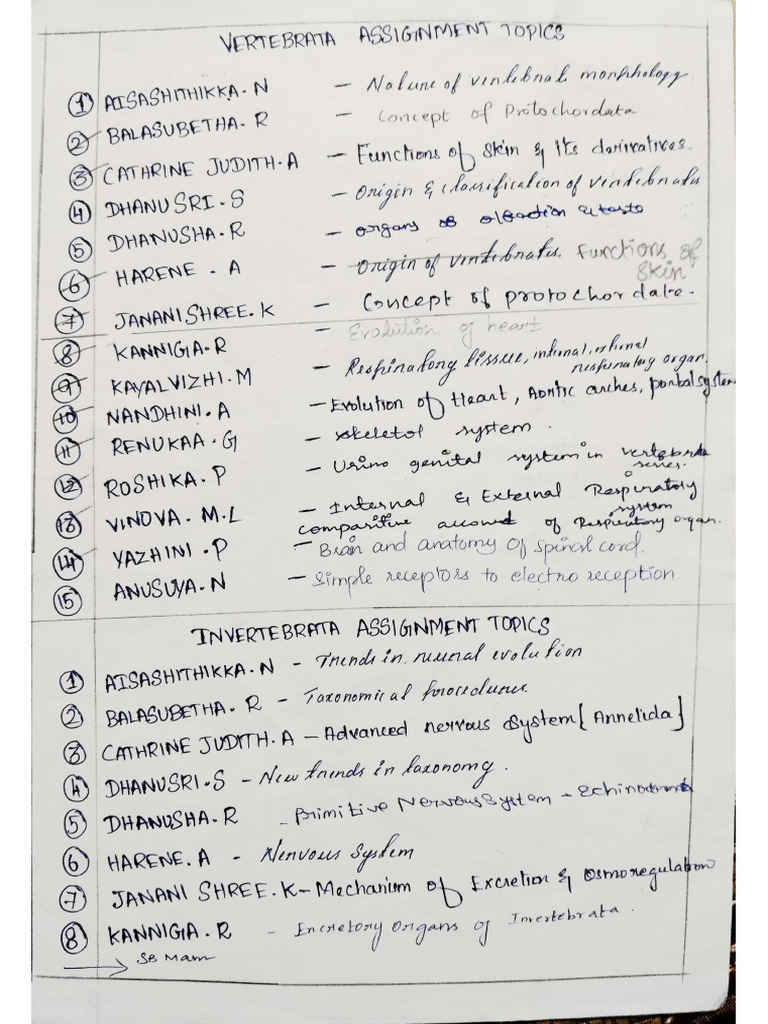 VERTEBRATA ASSIGNMENT TOPICS
1 AISASHITHIKKA.N - Nature of vertebrate morphology
2 BALASUBETHA.R - Concept of Protochordata
3 CATHRINE JUDITH.A - Functions of Skin & its derivatives.
4 DHANUSRI.S - Origin & classification of vertebrates
5 DHANUSHA.R - Organs of olfaction & taste
6 HARENE.A - Origin of vertebrates. Functions of Skin
7 JANANI SHREE.K - Concept of protochordate.
8 KANNIGA.R - Evolution of heart
9 KAYALVIZHI.M - Respiratory tissue, internal, external respiratory organ.
10 NANDHINI.A - Evolution of Heart, Aortic arches, portal system
11 RENUKAA.G - Skeletol system.
12 ROSHIKA.P - Urino genital system in vertebrate series.
13 VINOVA.M.L - Internal & External Respiratory system
comparitive account of Respiratory organ.
14 YAZHINI.P - Brain and anatomy of spinal cord.
15 ANUSUYA.N - Simple receptors to electro reception
INVERTEBRATA ASSIGNMENT TOPICS
1 AISASHITHIKKA.N - Trends in neural evolution
2 BALASUBETHA.R - Taxonomical procedures
3 CATHRINE JUDITH.A - Advanced nervous system [Annelida]
4 DHANUSRI.S - New trends in taxonomy.
5 DHANUSHA.R - Primitive Nervous System - Echinodermata
6 HARENE.A - Nervous System
7 JANANI SHREE.K - Mechanism of Excretion & Osmoregulation
8 KANNIGA.R - Encretory Organs of Invertebrata.
→ SB Mam